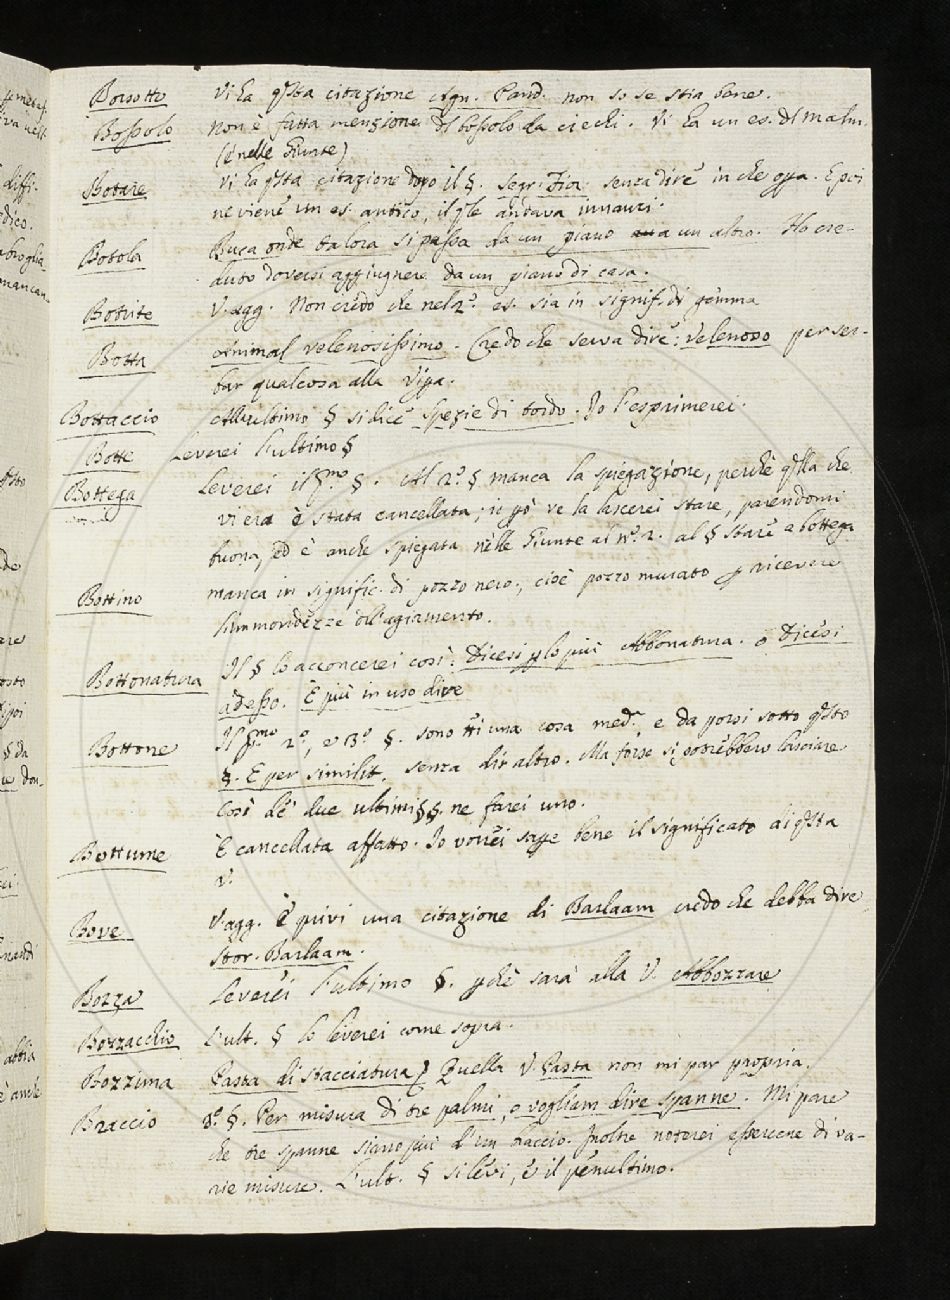 Borsotto Vi ha q.sta citazione Agn. Pand. non so se stia bene.
Bossolo Non è fatta menzione del bossolo da ciechi. Vi ha un es. del Malm.
(è nelle Giunte)
Botare Vi ha q.sta citazione dopo il §. Segr. Fior. senza dire in che op.a. E poi
ne viene un es. antico, il q.le andava innanzi.
Botola Buca onde talora si passa da un piano a un altro. Ho cre-
duto doversi aggiugnere da un piano di casa.
Botrite V. agg. Non credo che nel 2.° es. sia in signif. di gemma
Botta animal velenosissimo. Credo che serva dire: velenoso per ser-
bar qualcosa alla Vip.a.
Bottaccio All'ultimo § si dice spezie di tordo. Io l'esprimerei.
Botte Leverei l'ultimo §
Bottega Leverei il p.mo §. Al 2.° § manca la spiegazione, perchè q.lla che
vi era è stata cancellata; ve la lascerei stare, parendomi
buona, ed è anche spiegata nelle Giunte al n.° 2. al § Stare a bottega
Bottino manca in signific. di pozzo nero, cioè pozzo murato p ricevere
l'immondezze dell'agiamento.
Bottonatura Il § lo acconcerei così: Dicesi p lo più Abbonatura. o Dicesi
adesso. È più in uso dire
Bottone Il p.mo 2.°, e 3.° §. sono tti una cosa med.a, e da porsi sotto q.sto
§. E per similit. senza dir altro. Ma forse si potrebbero lasciare
così de' due ultimi §§. ne farei uno.
Bottume È cancellata affatto. Io vorrei sape bene il significato di q.sta
V.
Bove V. agg. È quivi una citazione di Barlaam credo che debba dire
Stor. Barlaam.
Bozza Leverei l'ultimo §. pchè sarà alla V. Abbozzare
Bozzacchio L'ult. § lo leverei come sopra.
Bozzima Pasta di stacciatura Quella V. Pasta non mi par propria.
Braccio 8.° §. Per misura di tre palmi, o vogliam dire spanne. Mi pare
che tre spanne siano più d'un braccio. Inoltre noterei essercene di va-
rie misure. L'ult. § si levi, è il penultimo.